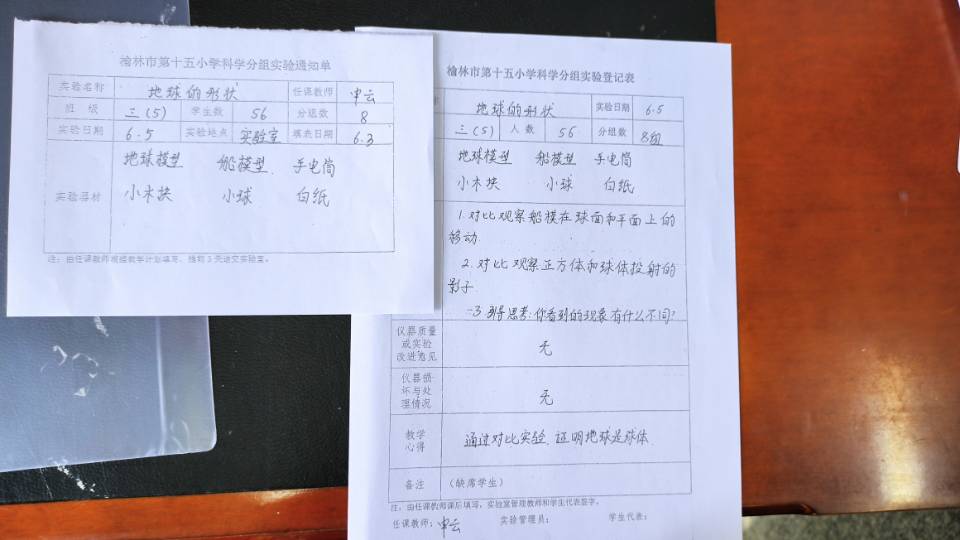 榆林市第十五小学科学分组实验通知单
实验名称 地球的形状 任课教师 申云
班 级 三(5) 学生数 56 分组数 8
实验日期 6.5 实验地点 实验室 填表日期 6.3
地球模型 船模型 手电筒
实验器材 小木块 小球 白纸
注:由任课教师根据教学计划填写,提前3天送交实验室。
榆林市第十五小学科学分组实验登记表
地球的形状 实验日期 6.5
三(5) 人 数 56 分组数 8组
地球模型 船模型 手电筒
小木块 小球 白纸
1.对比观察船模在球面和平面上的
移动.
2.对比观察正方体和球体投射的
影子
3 思考:你看到的现象有什么不同?
仪器质量
或实验
改进意见 无
仪器损
坏与处
理情况 无
教学
心得 通过对比实验、证明地球是球体.
备注 (缺席学生)
注:由任课教师课后填写,实验室管理教师和学生代表签字。
任课教师:申云 实验管理员: 学生代表: